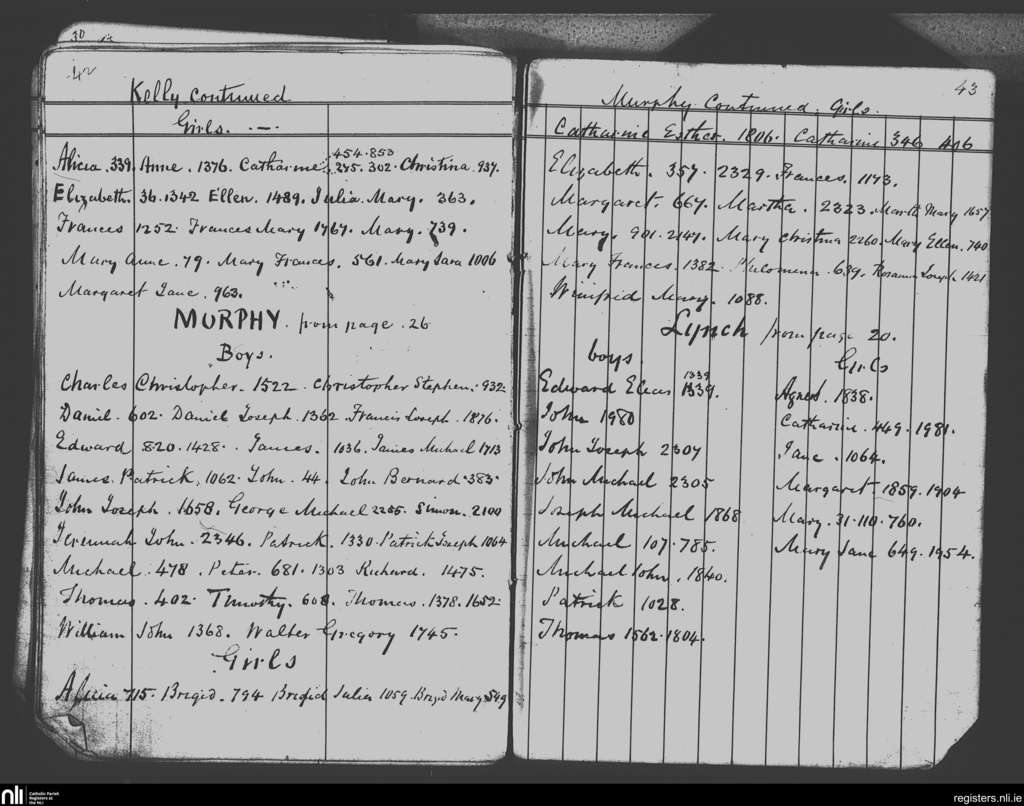 30
42
Kelly continued
Girls. —
454. 853
Alicia. 339. Anne. 1376. Catharine. 275. 302. Christina 937.
Elizabeth. 36. 1342 Ellen. 1489. Julia Mary. 363.
Frances 1252. Frances Mary 1767. Mary. 739.
Mary Anne. 79. Mary Frances. 561. Mary Sara 1006
Margaret Jane. 963.
MURPHY. from page. 26
Boys.
Charles Christopher. 1522. Christopher Stephen. 932.
Daniel. 602. Daniel Joseph. 1362 Francis Joseph. 1876.
Edward 820. 1428. James. 1036. James Michael 1713
James Patrick. 1062. John. 44. John Bernard. 383.
John Joseph. 1658. George Michael 2255. Simon. 2100
Jeremiah John. 2346. Patrick. 1330. Patrick Joseph 1064
Michael. 478. Peter. 681. 1303 Richard. 1475.
Thomas. 402. Timothy. 608. Thomas. 1378. 1652.
William John 1368. Walter Gregory 1745.
Girls
Alicia 715. Brigid. 794 Brigid Julia 1059. Brigid Mary 549
43
Murphy Continued. Girls.
Catharine Esther. 1806. Catharine 346 406
Elizabeth. 357. 2329. Frances. 1173.
Margaret. 667. Martha. 2323. Martha Mary 1657
Mary. 901. 2147. Mary Christina 2260. Mary Ellen. 740
Mary Frances. 1382. Philomena. 639. Rosanna Joseph 1421
Winifrid Mary. 1088.
Lynch from page 20.
boys Girls
1339
Edward Elias 1339. Agnes. 1838.
John 1980 Catharine. 449. 1981.
John Joseph 2307 Jane. 1064.
John Michael 2305 Margaret. 1859. 1904
Joseph Michael 1868 Mary. 31. 110. 760.
Michael 107. 785. Mary Jane 649. 1954.
Michael John. 1840.
Patrick 1028.
Thomas 1562. 1804.
nli Catholic Parish Registers at the NLI
registers.nli.ie